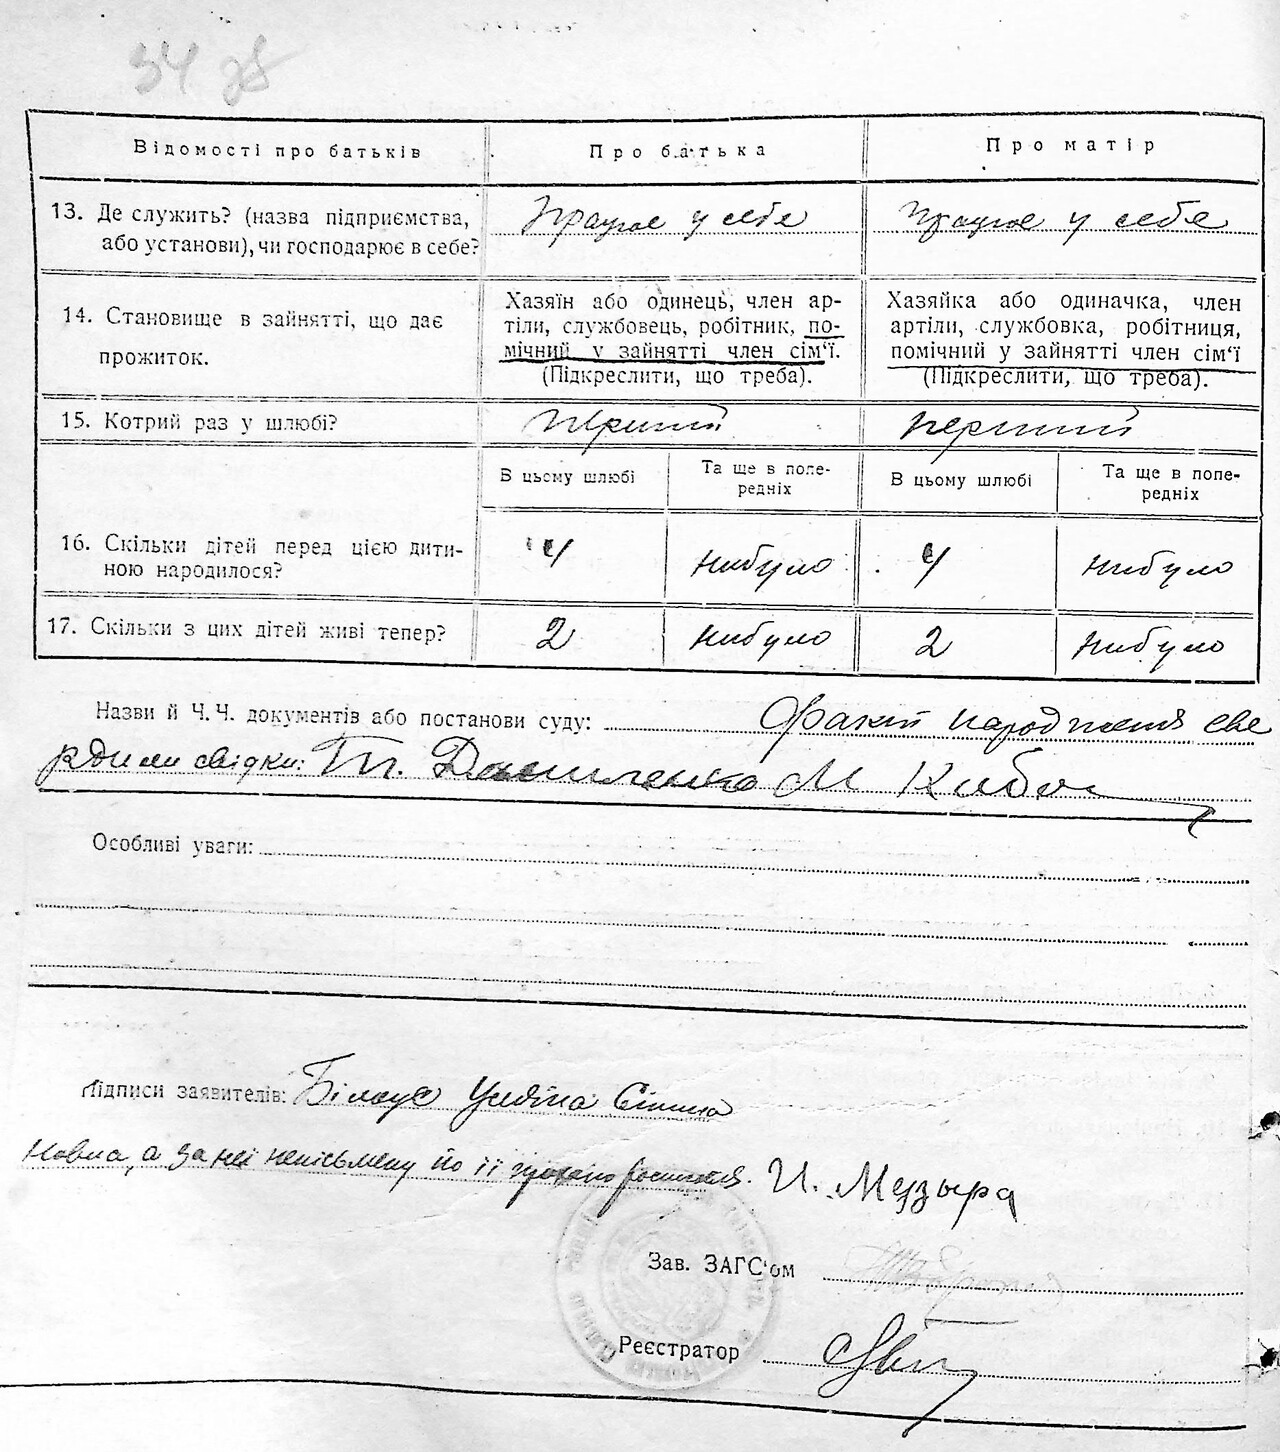 34 зв
Відомості про батьків
Про батька
Про матір
13. Де служить? (назва підприємства,
або установи), чи господарює в себе?
Працює у себе
Працює у себе
14. Становище в зайнятті, що дає
прожиток.
Хазяїн або одинець, член ар-
тіли, службовець, робітник, по-
мічний у зайнятті член сім‘ї.
(Підкреслити, що треба).
Хазяйка або одиначка, член
артіли, службовка, робітниця,
помічний у зайнятті член сім‘ї
(Підкреслити, що треба).
15. Котрий раз у шлюбі?
перший
перший
В цьому шлюбі
Та ще в попе-
редніх
В цьому шлюбі
Та ще в попе-
редніх
16. Скільки дітей перед цією дити-
ною народилося?
4
нибуло
4
нибуло
17. Скільки з цих дітей живі тепер?
2
нибуло
2
нибуло
Назви й Ч. Ч. документів або постанови суду: Факт народження све
рдили свідки: Даниленко М Киба
Особливі уваги:
Підписи заявителів: Білоус Уляна
новна, а за неї неписьмену по її
И. Музыра
Зав. ЗАГС‘ом
Реєстратор